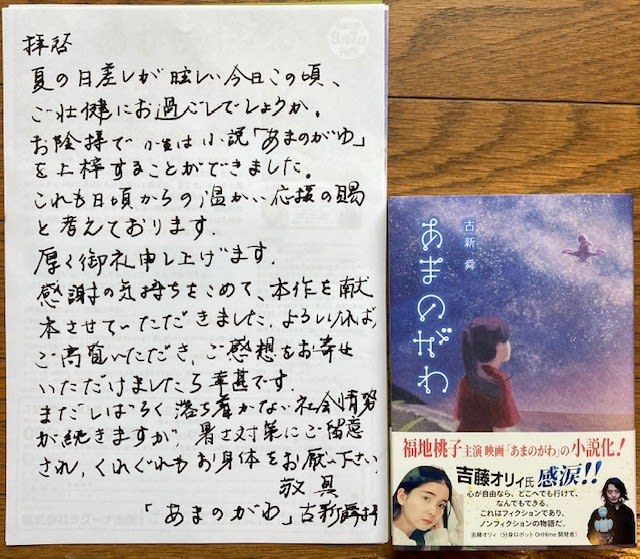 拝啓
夏の日差しが眩しい今日この頃、
ご壮健にお過ごしでしょうか。
お陰様で小生は小説「あまのがわ」
を上梓することができました。
これも日頃からの温かい応援の賜
と考えております。
厚く御礼申し上げます。
感謝の気持ちをこめて、本作を献
本させていただきました。よろしければ、
ご高覧いただき、ご感想をお寄せ
いただけましたら幸甚です。
まだしばらく落ち着かない社会情勢
が続きますが、暑さ対策にご留意
され、くれぐれもお身体をお厭い下さい。
敬具
「あまのがわ」古新舜
古新 舜
あまのがわ
福地桃子主演 映画「あまのがわ」の小説化!
吉藤オリィ氏 感涙!!
心が自由なら、どこへでも行けて、
なんでもできる。
これはフィクションであり、
ノンフィクションの物語だ。
吉藤オリィ(分身ロボット OriHime 開発者)